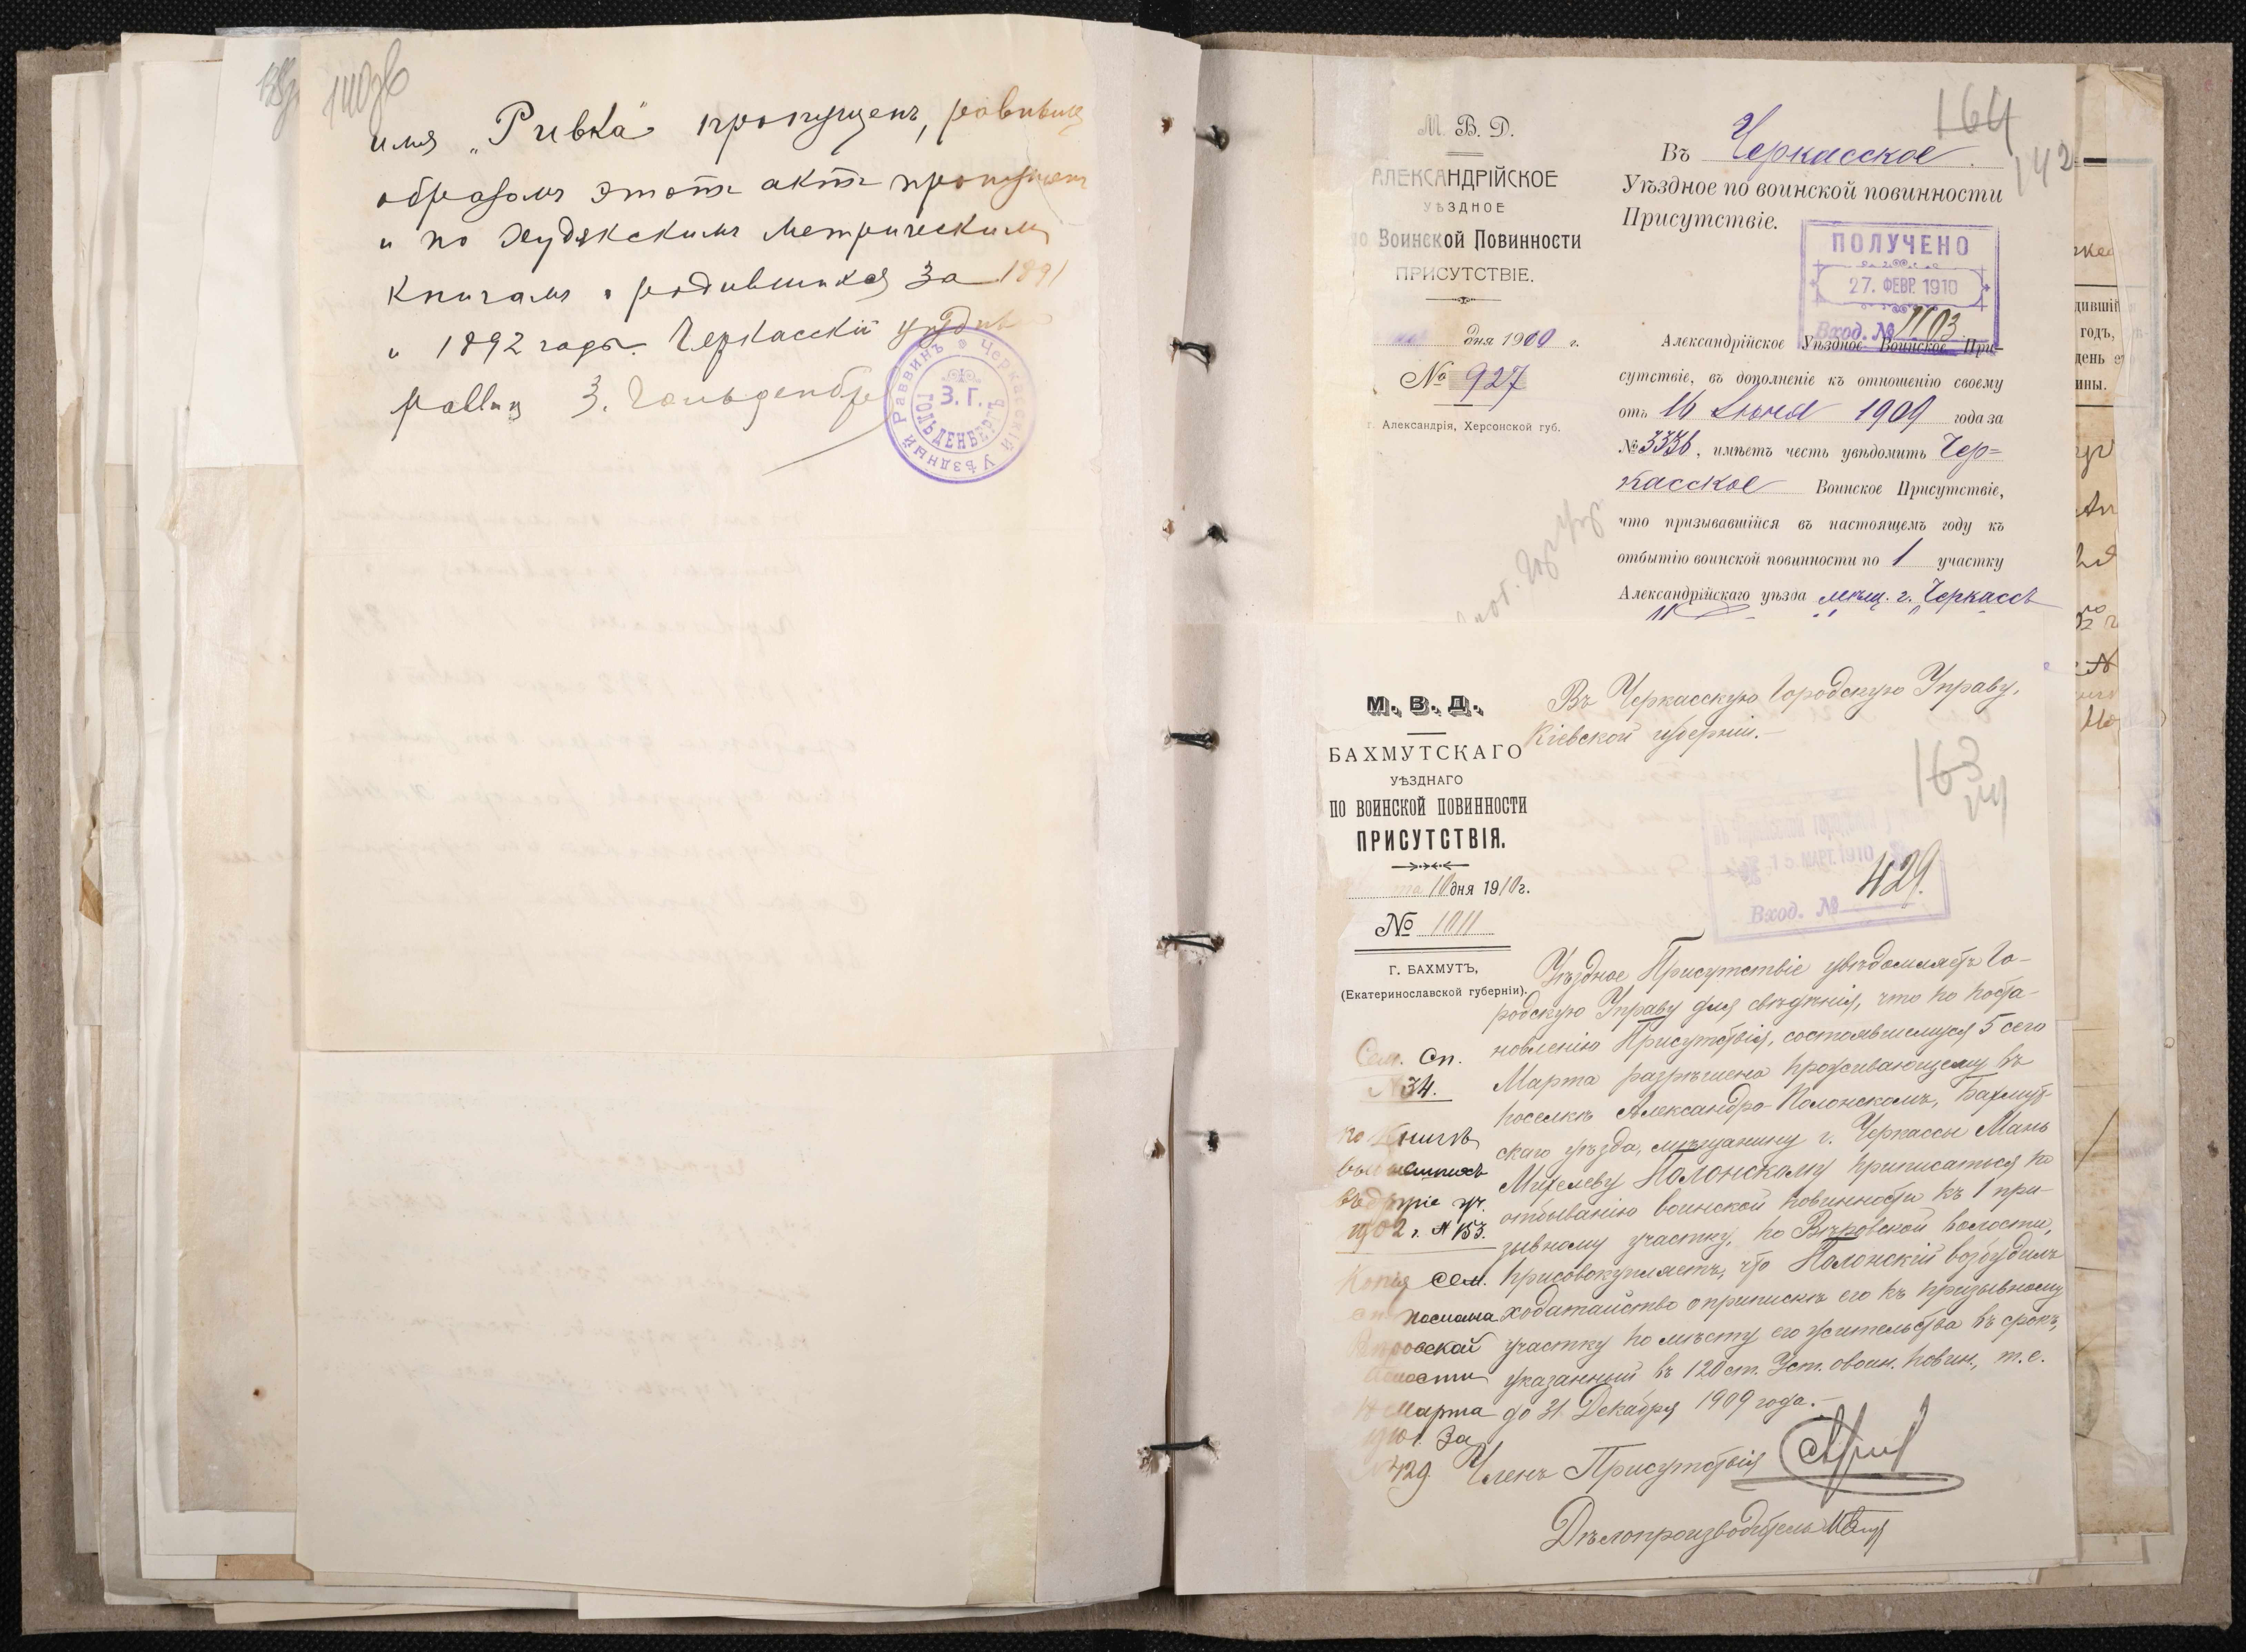 имя „Ривка“ пропущенъ,
образомъ этотъ актъ пропущенъ
и по Худякскимъ метрическимъ
книгамъ о родившихся за 1891
и 1892 годы. Черкасскій уѣздный
раввинъ З. Гольденбергъ
Черкасскій Уѣздный Раввинъ
З. Г.
ГОЛЬДЕНБЕРГЪ
164
142
М. В. Д.
АЛЕКСАНДРІЙСКОЕ
УѢЗДНОЕ
по Воинской Повинности
ПРИСУТСТВІЕ.
дня 1909 г.
№ 927
г. Александрія, Херсонской губ.
Въ Черкасское
Уѣздное по воинской повинности
Присутствіе.
ПОЛУЧЕНО
27. ФЕВР. 1910
Вход. № 1103
Александрійское Уѣздное Воинское При-
сутствіе, въ дополненіе къ отношенію своему
отъ 16 Іюня 1909 года за
№ 3336, имѣетъ честь увѣдомить Чер=
касское Воинское Присутствіе,
что призывавшійся въ настоящемъ году къ
отбытію воинской повинности по 1 участку
Александрійскаго уѣзда мѣщ. г. Черкассъ
М. В. Д.
БАХМУТСКАГО
УѢЗДНАГО
ПО ВОИНСКОЙ ПОВИННОСТИ
ПРИСУТСТВІЯ.
10 дня 1910 г.
№ 1011
Г. БАХМУТЪ,
(Екатеринославской губерніи).
Въ Черкасскую Городскую Управу,
Кіевской губерніи.-
163
15 МАРТ. 1910
Вход. № 429.
Уѣздное Присутствіе увѣдомляетъ Го-
родскую Управу для свѣдѣнія, что по поста-
новленію Присутствія, состоявшемуся 5 сего
Марта разрѣшено проживающему въ
поселкѣ Александро-Полонскомъ, Бахмут-
скаго уѣзда, мѣщанину г. Черкассы Мань
Михелеву Полонскому приписаться по
отбыванію воинской повинности къ 1 при-
зывному участку, по Вѣровской волости,
присовокупляетъ, что Полонскій возбудилъ
ходатайство о припискѣ его къ призывному
участку по мѣсту его жительства въ срокъ,
указанный въ 120 ст. Уст. о воин. повин., т.е.
до 31 Декабря 1909 года.-
Членъ Присутствія
Дѣлопроизводитель
Сем. Сп.
№ 34.
по книгѣ
1902 г. № 153.
Копія сем.
сп. послана
Вѣровской
волости
Марта
1910 г. за
№ 429.